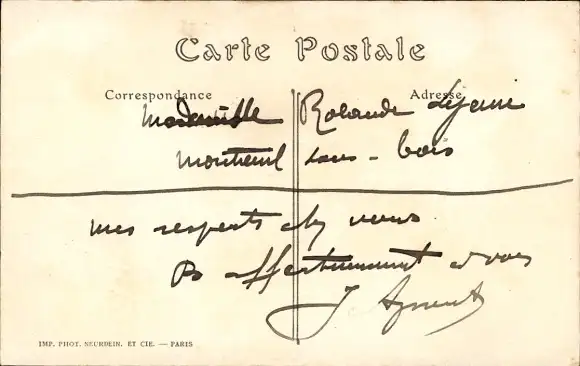 Carte Postale
Correspondance Adresse
Mademoiselle Rolande Lejeune
Montreuil sous-bois
mes respects chez vous
affectueusement à vous
J
IMP. PHOT. NEURDEIN. ET CIE. — PARIS